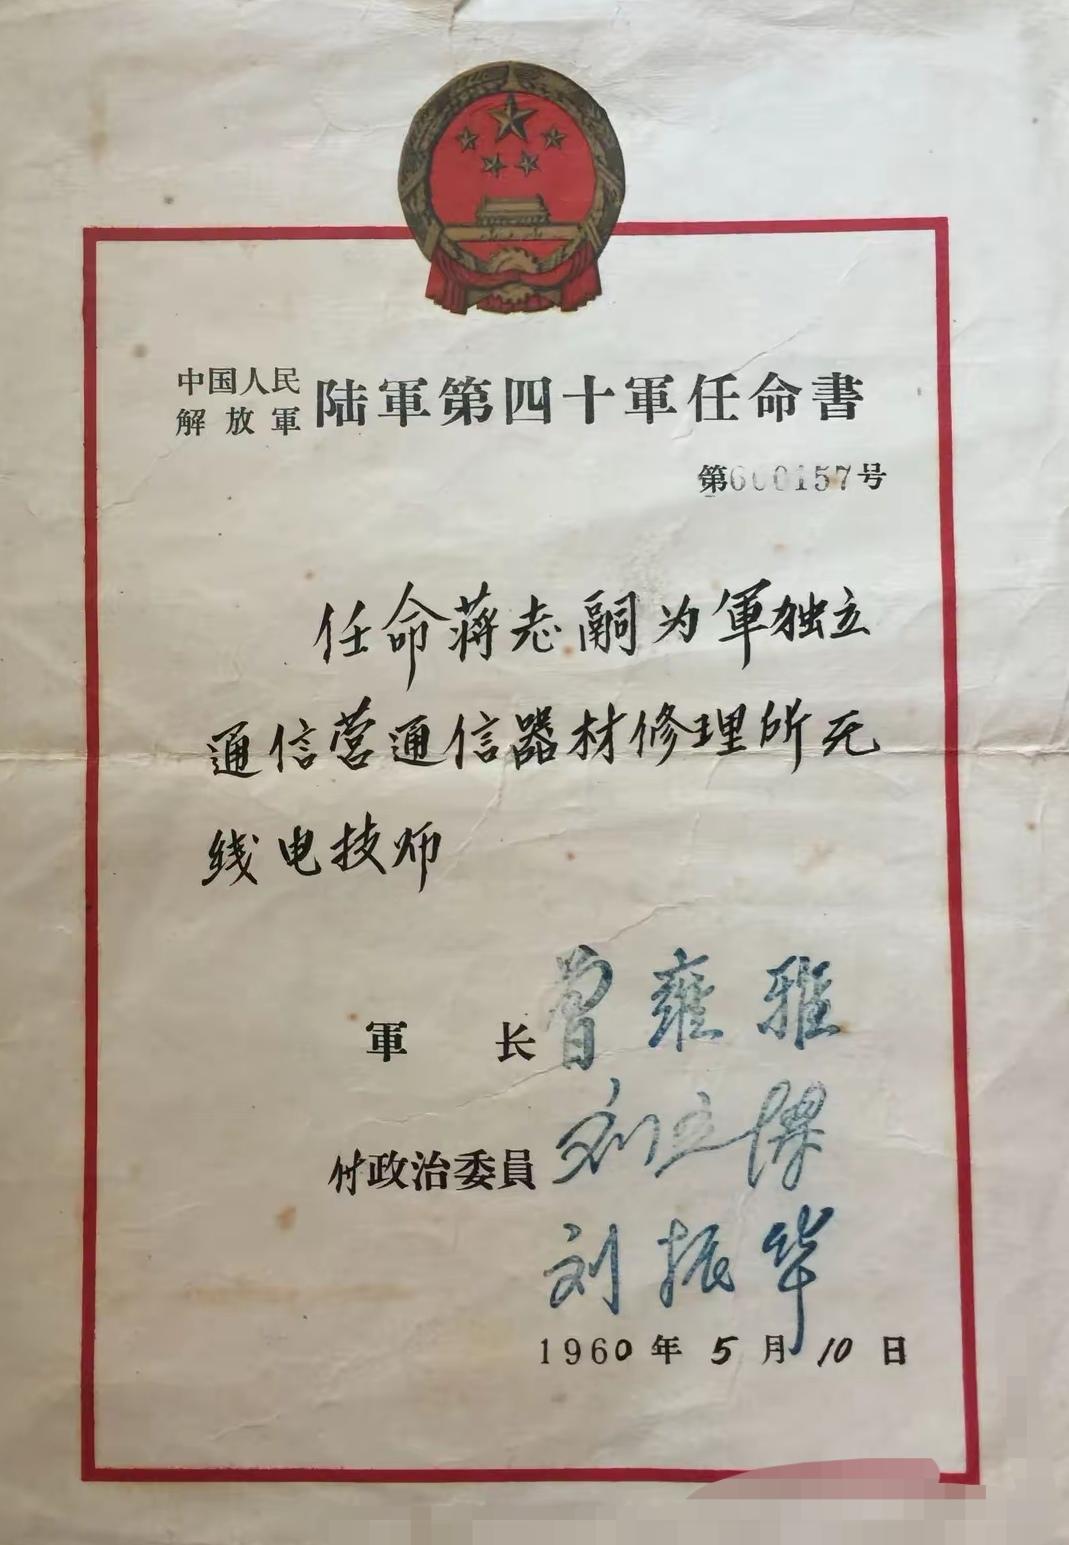 中国人民
解放軍
陆軍第四十軍任命書
第600157号
任命蒋志嗣为軍独立
通信营通信器材修理所无
线电技师
軍长 曾雍雅
付政治委員 刘立
刘振华
1960年5月10日